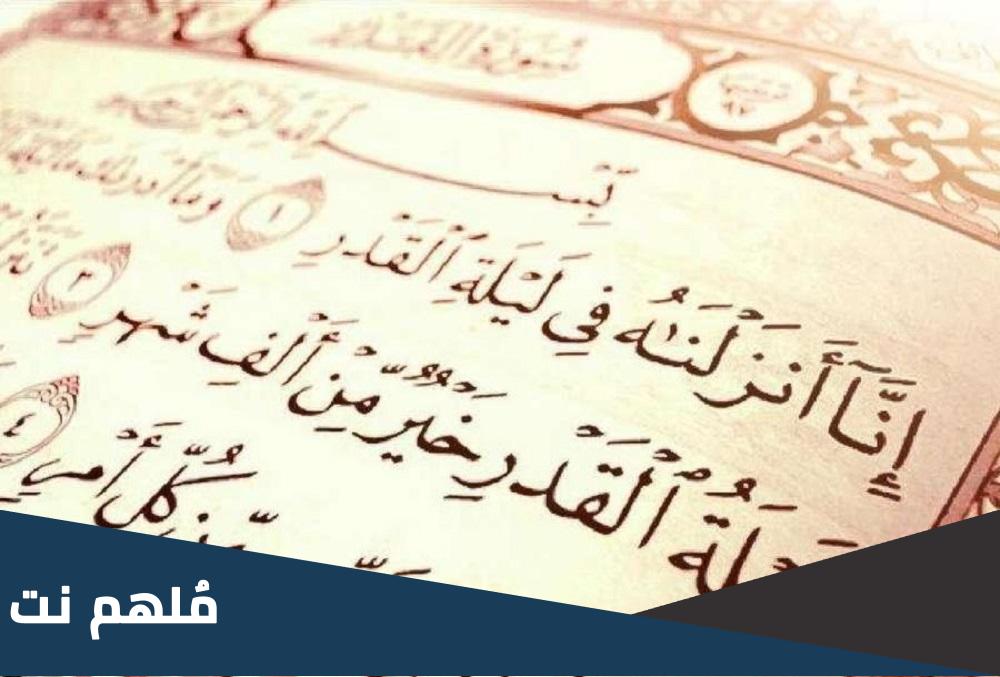 سُورَةُ القَدْرِ
بِسْمِ اللَّهِ الرَّحْمَٰنِ الرَّحِيمِ
إِنَّآ أَنزَلْنَٰهُ فِي لَيْلَةِ ٱلْقَدْرِ ١ وَمَآ أَدْرَىٰكَ مَا لَيْلَةُ
ٱلْقَدْرِ خَيْرٌ مِّنْ أَلْفِ شَهْرٍ ٣
كُلِّ أَمْرٍ ٤
مُلهم نت